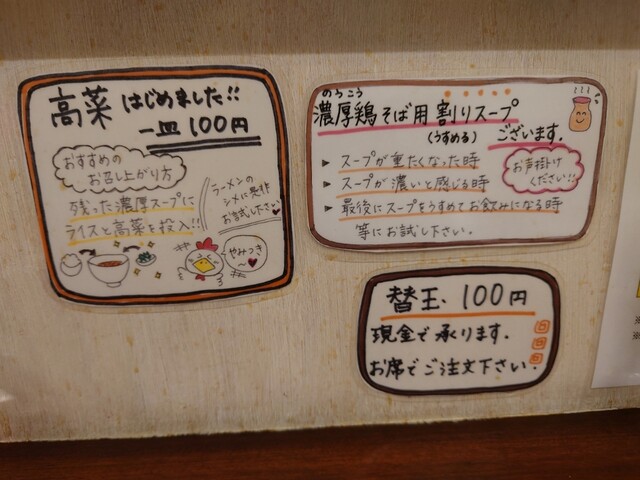 高菜 はじめました!!
一皿 100円
おすすめの
お召し上がり方
残った濃厚スープに
ライスと高菜を投入!!
ラーメンの
シメに是非
お試し下さい♥
やみつき
〜♥
のうこう
濃厚鶏そば用 割りスープ
(うすめる) ございます。
▶ スープが重たくなった時
▶ スープが濃いと感じる時
▶ 最後にスープをうすめてお飲みになる時
等にお試し下さい。
お声掛け
ください!!
替玉、100円
現金で承ります。
お席でご注文下さい。